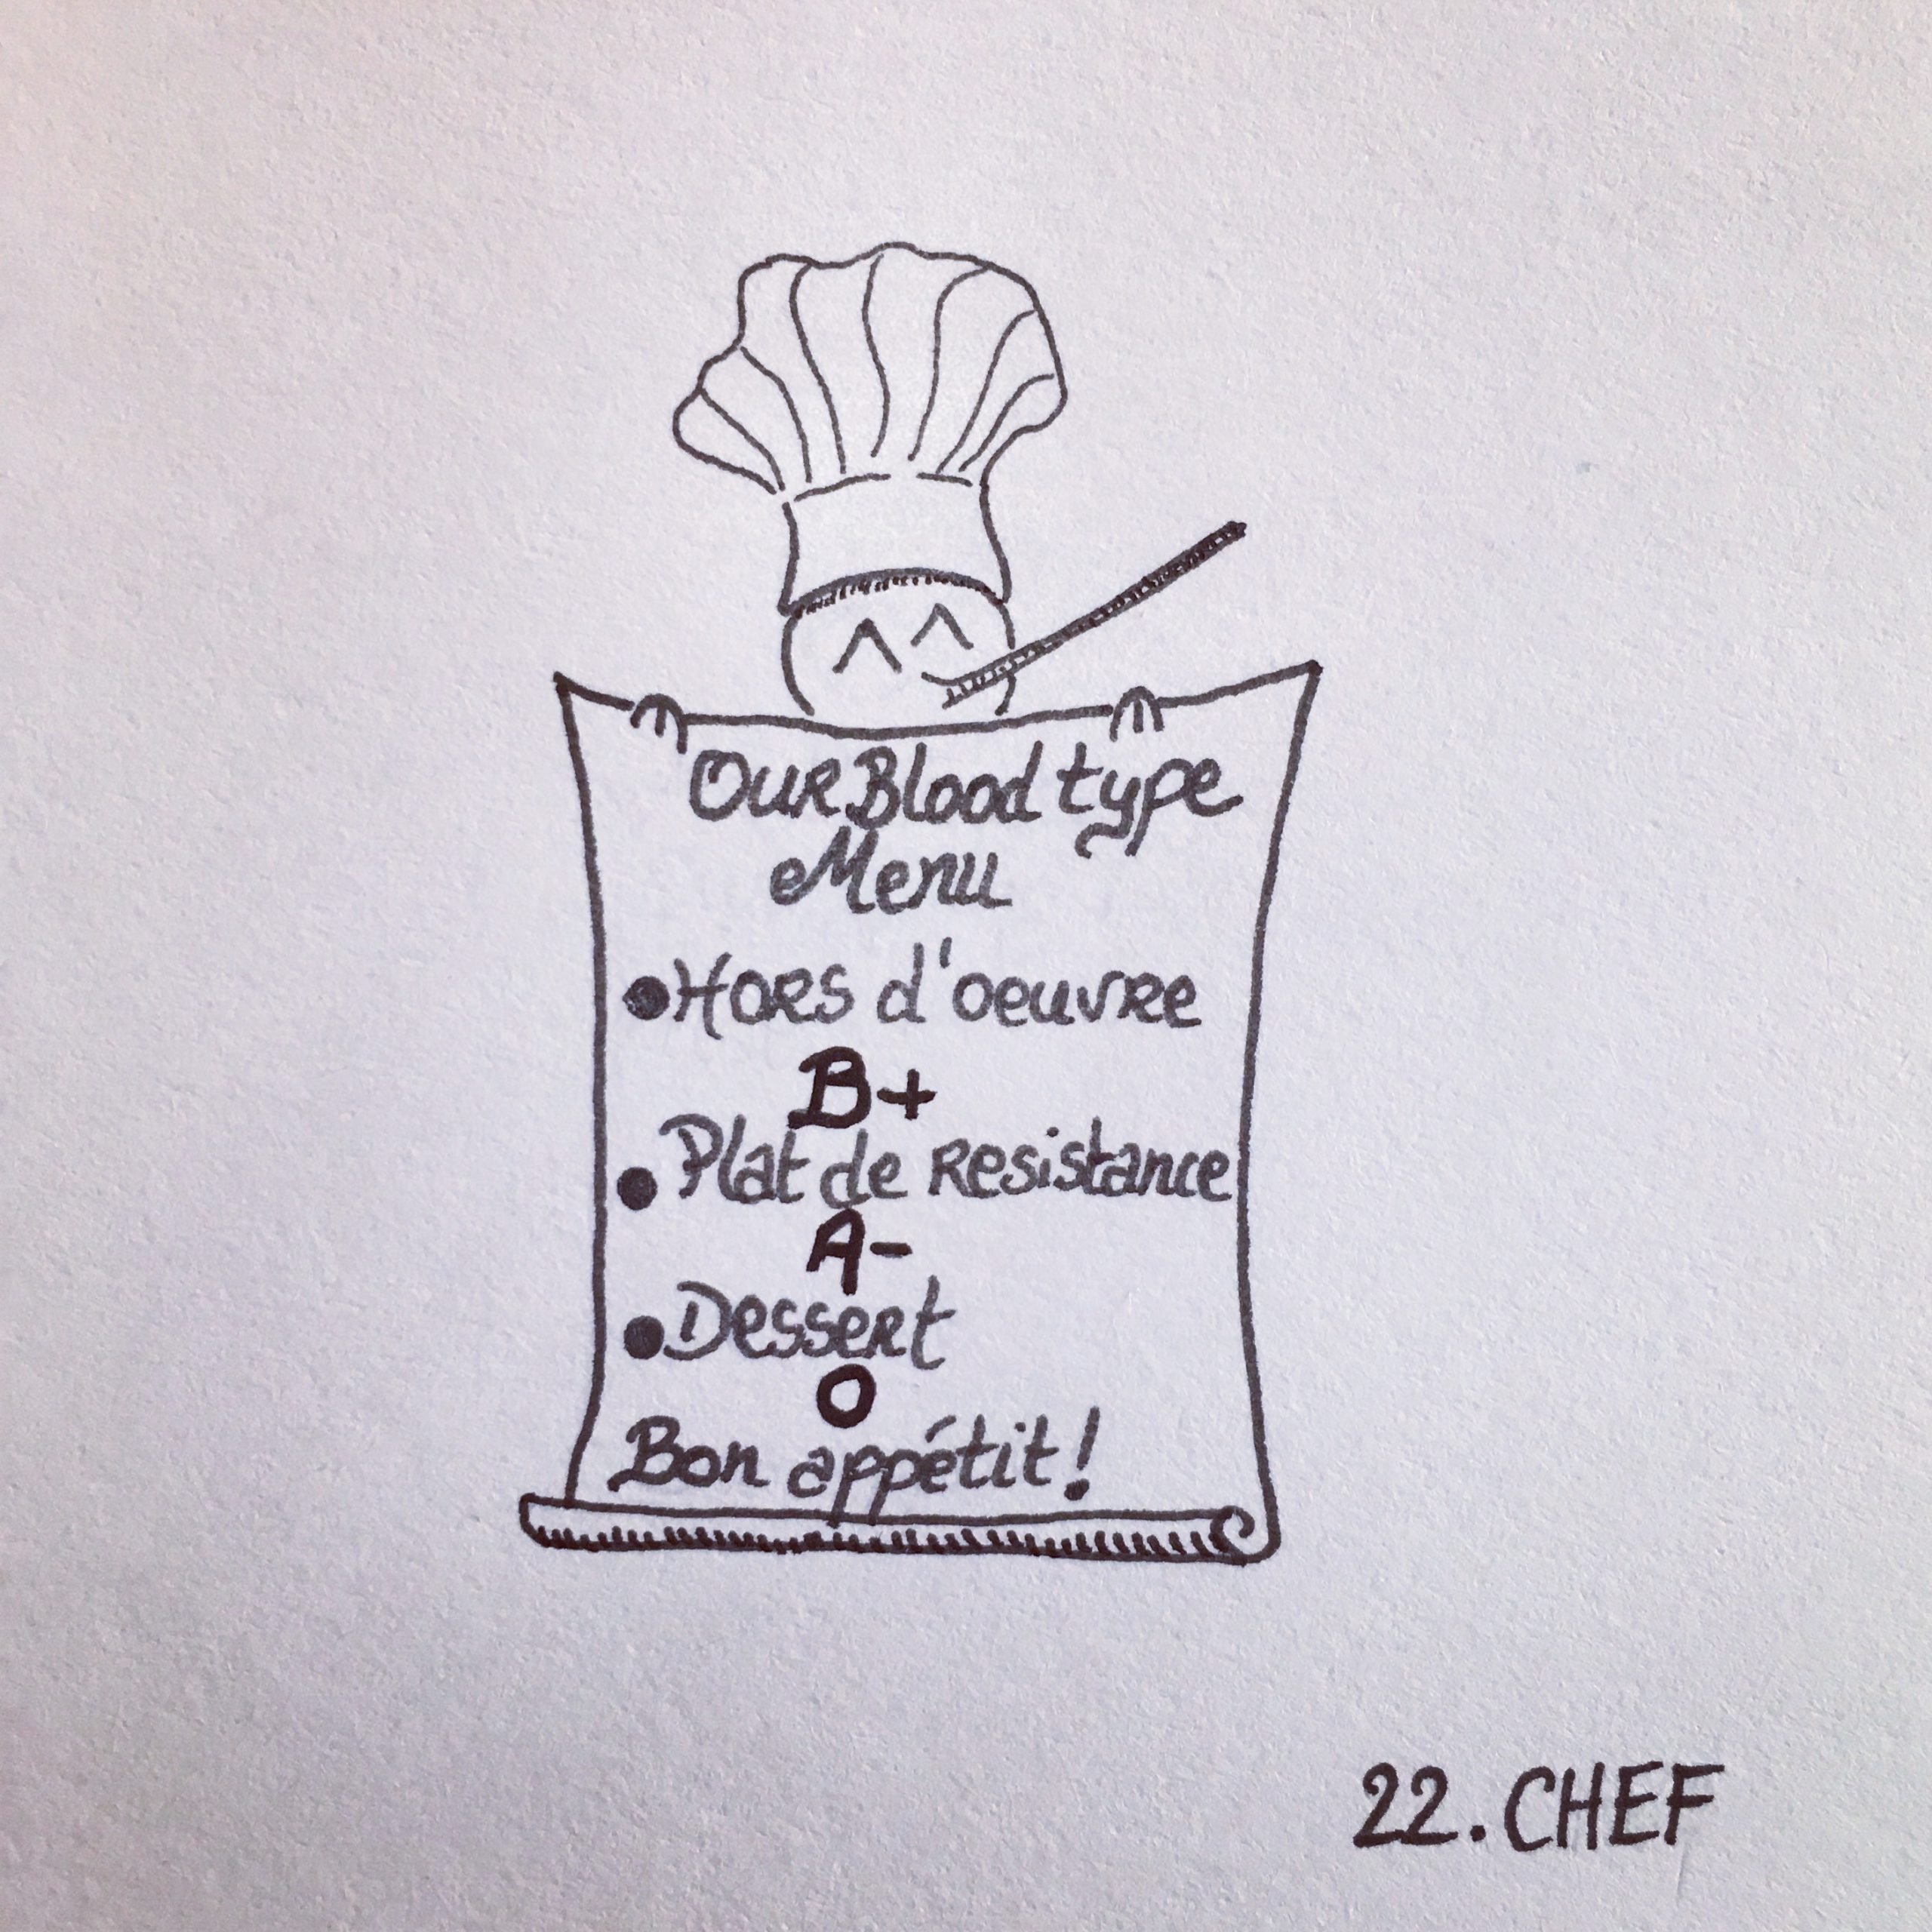 Our Blood type
Menu
●Hors d'oeuvre
B+
● Plat de Resistance
A-
●Dessert
O
Bon appétit!
22. CHEF